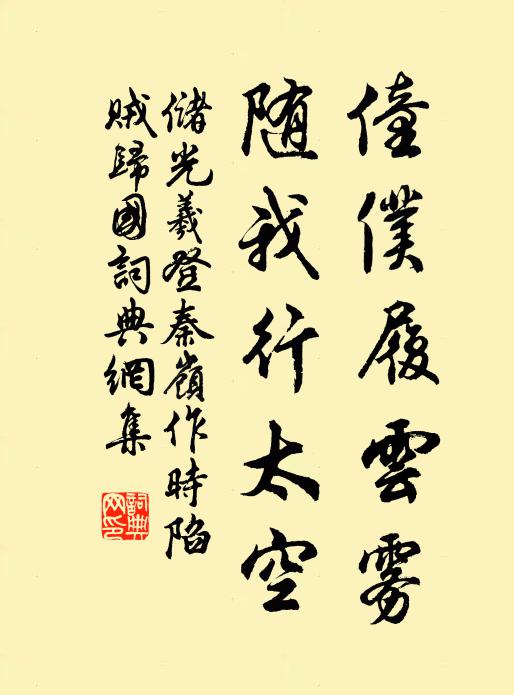 僮僕履雲霧
随我行太空
儲光羲登秦嶺作時陷
賊歸國詞典網集
詞典
网印